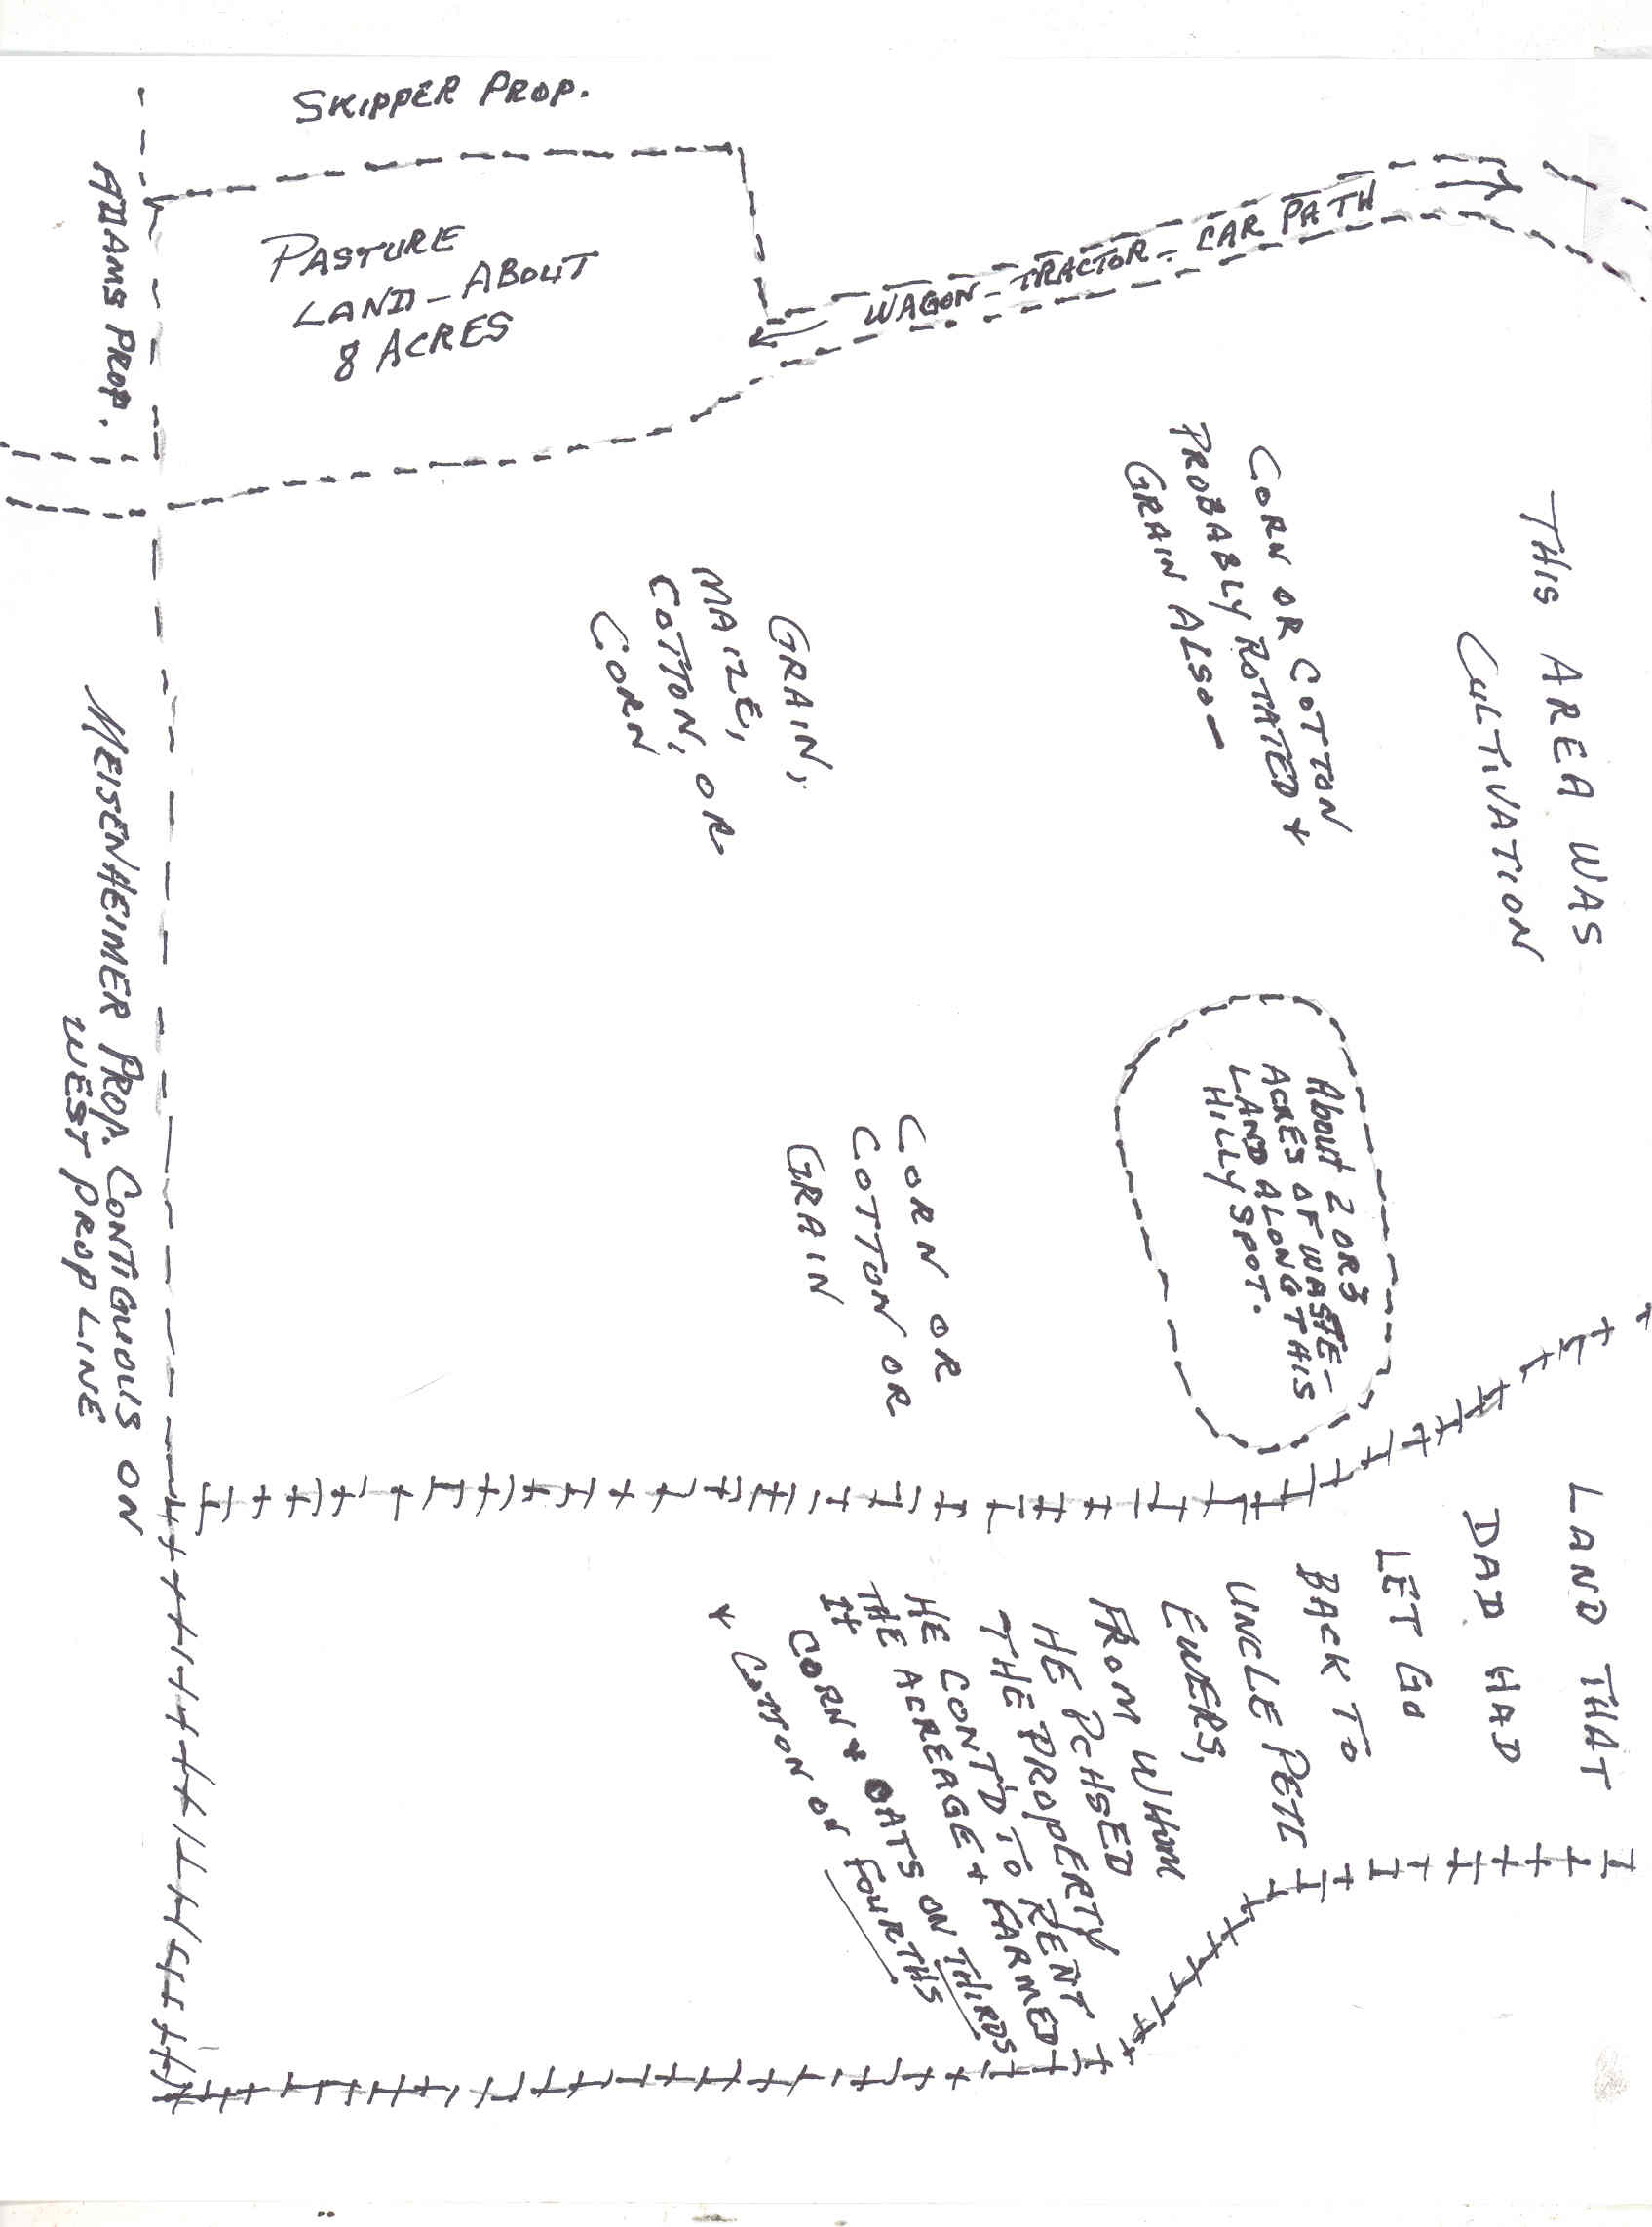 SKIPPER PROP.
ADAMS PROP.
PASTURE
LAND - ABOUT
8 ACRES
WAGON - TRACTOR - CAR PATH
THIS AREA WAS
CULTIVATION
CORN OR COTTON
PROBABLY ROTATED +
GRAIN ALSO -
GRAIN,
MAIZE,
COTTON, OR
CORN
About 2 OR 3
ACRES OF WASTE-
LAND ALONG THIS
HILLY SPOT.
CORN OR
COTTON OR
GRAIN
MEISENHEIMER PROP. CONTIGUOUS ON
WEST PROP LINE
LAND THAT
DAD HAD
LET GO
BACK TO
UNCLE PETE
EWERS,
FROM WHOM
HE PCHSED
THE PROPERTY
HE CONT'D TO RENT
THE ACREAGE + FARMED
IT
CORN + OATS ON THIRDS
+ COTTON ON FOURTHS